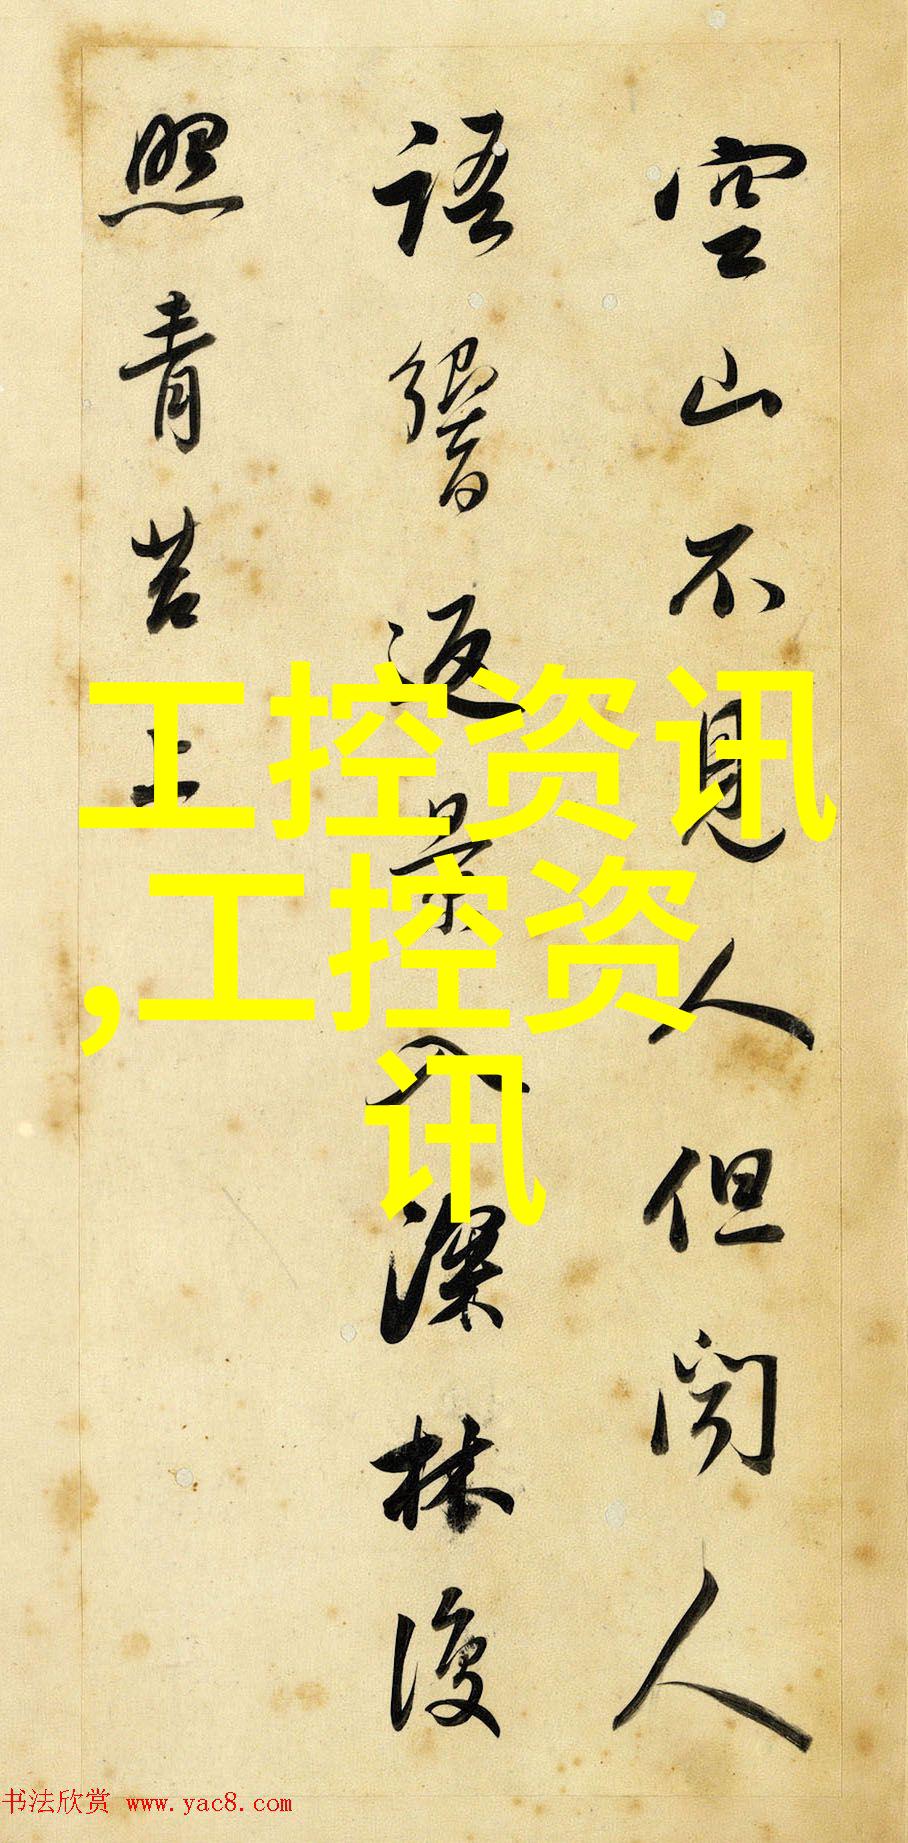 空山不見人但聞人
語響返景入深林復
照青苔上
工控资讯
,工控资
讯
书法欣赏 www.yac8.com